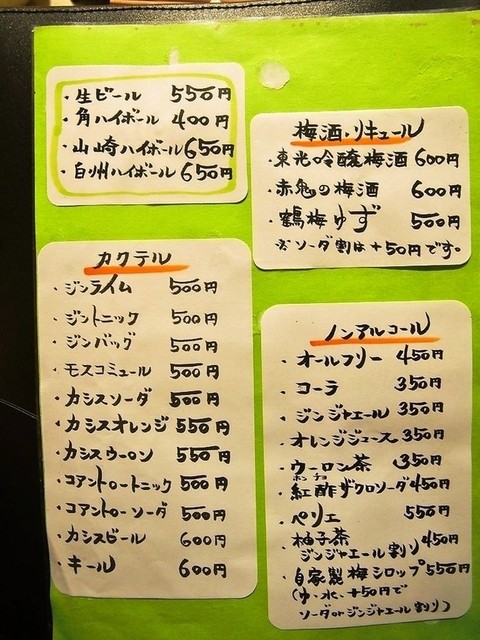 ・生ビール 550円
・角ハイボール 400円
・山崎ハイボール 650円
・白州ハイボール 650円
梅酒・リキュール
・東光吟醸梅酒 600円
・赤鬼の梅酒 600円
・鶴梅ゆず 500円
※ソーダ割は+50円です。
カクテル
・ジンライム 500円
・ジントニック 500円
・ジンバック 500円
・モスコミュール 500円
・カシスソーダ 500円
・カシスオレンジ 550円
・カシスウーロン 550円
・コアントロートニック 500円
・コアントローソーダ 500円
・カシスビール 600円
・キール 600円
ノンアルコール
・オールフリー 450円
・コーラ 350円
・ジンジャエール 350円
・オレンジジュース 350円
・ウーロン茶 350円
・紅酢ザクロソーダ 450円
・ペリエ 550円
・柚子茶 450円
ジンジャエール割り
・自家製梅シロップ 550円
(ゆ、水、+50円で
ソーダorジンジャエール割り)